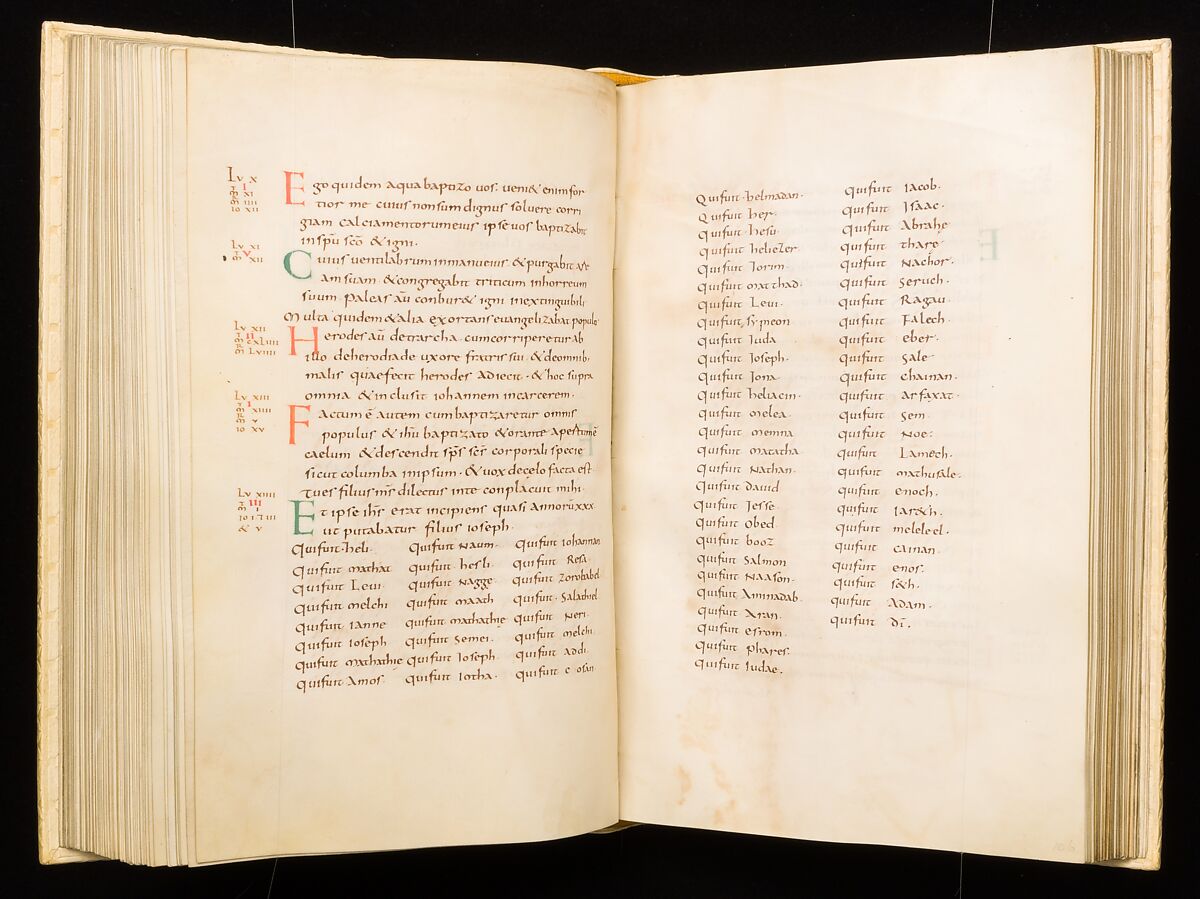 Lv X
I
m XI
m IIII
IO XII
Ego quidem aqua baptizo vos. veni& enim for
tior me cuius non sum dignus solvere corri
giam calciamentorum eius ipse vos baptizabit
in spu sco & igni.
Lv XI
T V
m XII
Cuius ventilabrum in manu eius & purgabit are
am suam. & congregabit triticum in horreum
suum. paleas au conbur& igni inextinguibili
Multa quidem & alia exortans evangelizabat populo.
Lv XII
II
m CXLIIII
m LVIIII
Herodes au detrarcha cum corriperetur ab
illo de herodiade uxore fratris sui. & de omnib;
malis quae fecit herodes adiecit. & hoc supra
omnia & inclusit iohannem in carcerem.
Lv XIII
I
m XIIII
m V
IO XV
Factum e autem cum baptizaretur omnis
populus & ihu baptizato & orante apertum e
caelum & descendit sps scs corporali specie
sicut columba in ipsum. & vox de celo facta est
tu es filius ms dilectus in te conplacuit mihi.
Lv XIIII
T III
m I
IO I T III
& V
Et ipse ihs erat incipiens quasi annoru xxx.
ut putabatur filius ioseph.
Qui fuit heli.
Qui fuit mathat
Qui fuit Levi
Qui fuit melchi
Qui fuit ianne
Qui fuit ioseph
Qui fuit mathathie
Qui fuit Amos.
Qui fuit Naum.
Qui fuit hesli.
Qui fuit Nagge
Qui fuit maath
Qui fuit mathathie
Qui fuit Semei.
Qui fuit Ioseph
Qui fuit Iotha.
Qui fuit Iohannan
Qui fuit Resa.
Qui fuit Zorobabel
Qui fuit. Salathiel
Qui fuit Neri.
Qui fuit melchi.
Qui fuit addi.
Qui fuit cosan
Qui fuit. helmadan.
Qui fuit her.
Qui fuit hesu.
Qui fuit heliezer.
Qui fuit Iorim.
Qui fuit matthad.
Qui fuit Levi.
Qui fuit, symeon
Qui fuit Iuda
Qui fuit Ioseph.
Qui fuit Iona
Qui fuit heliacin.
Qui fuit melea.
Qui fuit menna
Qui fuit matatha
Qui fuit Nathan.
Qui fuit David
Qui fuit Iesse
Qui fuit Obed.
Qui fuit booz
Qui fuit Salmon
Qui fuit Naason.
Qui fuit Aminadab.
Qui fuit Aran.
Qui fuit esrom.
Qui fuit phares.
Qui fuit Iudae.
Qui fuit Iacob.
Qui fuit Isaac.
Qui fuit Abrahe
Qui fuit thare
Qui fuit Nachor.
Qui fuit Seruch.
Qui fuit Ragau
Qui fuit Falech.
Qui fuit eber.
Qui fuit Sale
Qui fuit chainan.
Qui fuit Arfaxat.
Qui fuit Sem.
Qui fuit Noe:
Qui fuit Lamech.
Qui fuit mathusale.
Qui fuit enoch.
Qui fuit Iar&h.
Qui fuit meleleel.
Qui fuit cainan.
Qui fuit enos.
Qui fuit s&h.
Qui fuit Adam.
Qui fuit di.
106